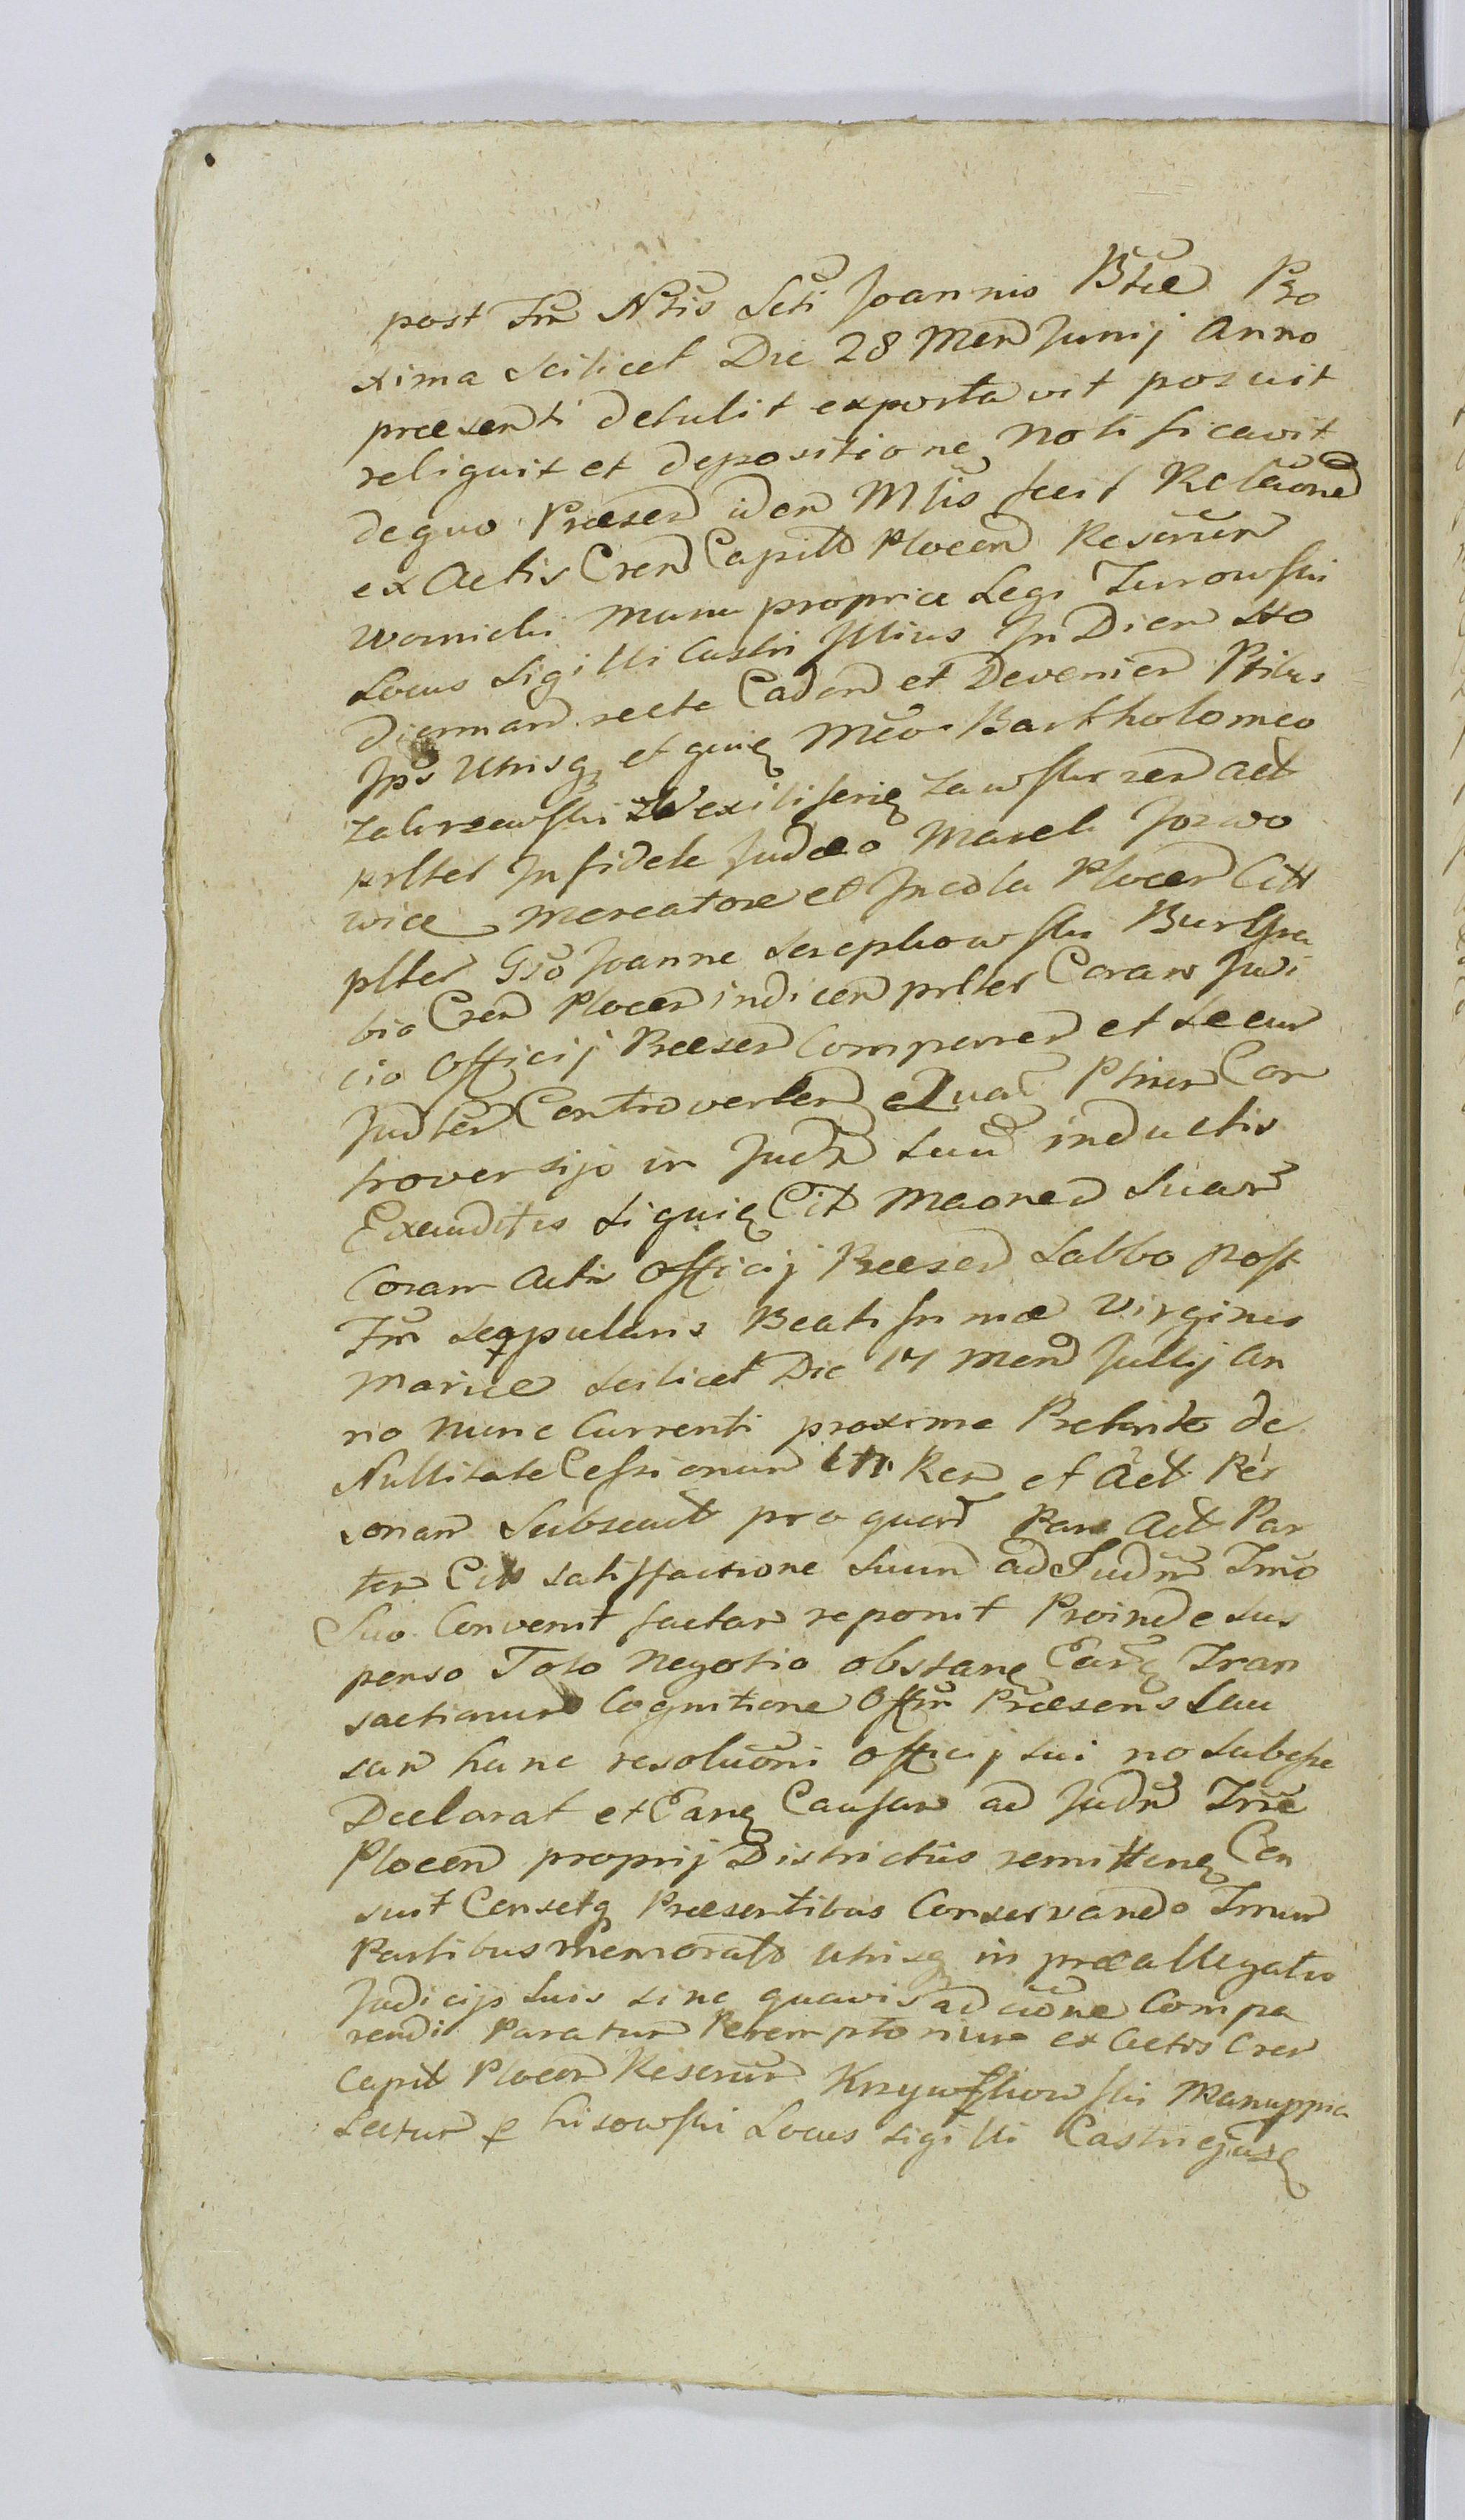 post Fm Ntis Scti Joannis Btæ Pro
xima scilicet Die 28 Men Junij Anno
præsenti detulit exportavit posuit
reliquit et depositione notificavit
de quo Præsen iden Mlis fecit Relaõne
ex Actis Cren Capitt Plocen Reserum
Warnicki manu propria Legi Zurowski
Locus Sigilli Castri Illius In Dien Hto
diernan recte Caden et Devenien Ptibus
Jps Utrisq et quiq Mco Bartholomeo
Zakrzewski Vexilifero Zawskrzen Act
prlter Infidele Judæo Marek Jozwo
wicz Mercatore et Incola Plocen Citt
plter Gso Joanne Serephowski Burgra
bio Cren Plocen indicen prlter Coram Judi
cio Officij Præsen Comparen et secum
Judter Controverten Qua Ptium Con
troversijs in Judm suu inductis
Exauditis Siquiq Cit Maoned suam
Coram Actis Officij Præsen Sabbo post
Fm Scapularis Beatissimæ Virginis
Mariæ scilicet Die 17 Men Jullij An
no nunc Currenti proxime Preterito de
Nullitate Cessionum Ren et Act Per
sonam Subsecut pro quam Pars Act Par
ten Cit satisfactione suum ad Judm Trno
Suo Convenit factam reponit Proinde sus
penso Toto Negotio obstane Earq Tran
sactionum Cognitione Offm Præsens Cau
sam hanc resoluõni Officij sui no subesse
Declarat et Eanq Causam ad Judm Trre
Plocen proprij Districtus remittenq Cen
suit Censetq Præsentibus Conservando Trnum
Partibus memorat Utrisq in præallegatis
Judicijs suis sine quavis adcõne Compa
rendi Paratum Peremptorium ex Actis Cren
Capit Plocen Reserum Krzywkowski Manuppia
Lectum p Lisowski Locus Sigilli Castri ejusq